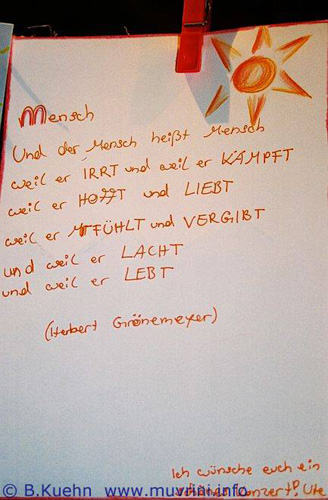 Mensch
Und der Mensch heißt Mensch
weil er IRRT und weil er KÄMPFT
weil er HOFFT und LIEBT
weil er MITFÜHLT und VERGIBT
und weil er LACHT
und weil er LEBT
(Herbert Grönemeyer)
Ich wünsche euch ein
schönes Konzert! Ute
© B.Kuehn www.muvmini.info